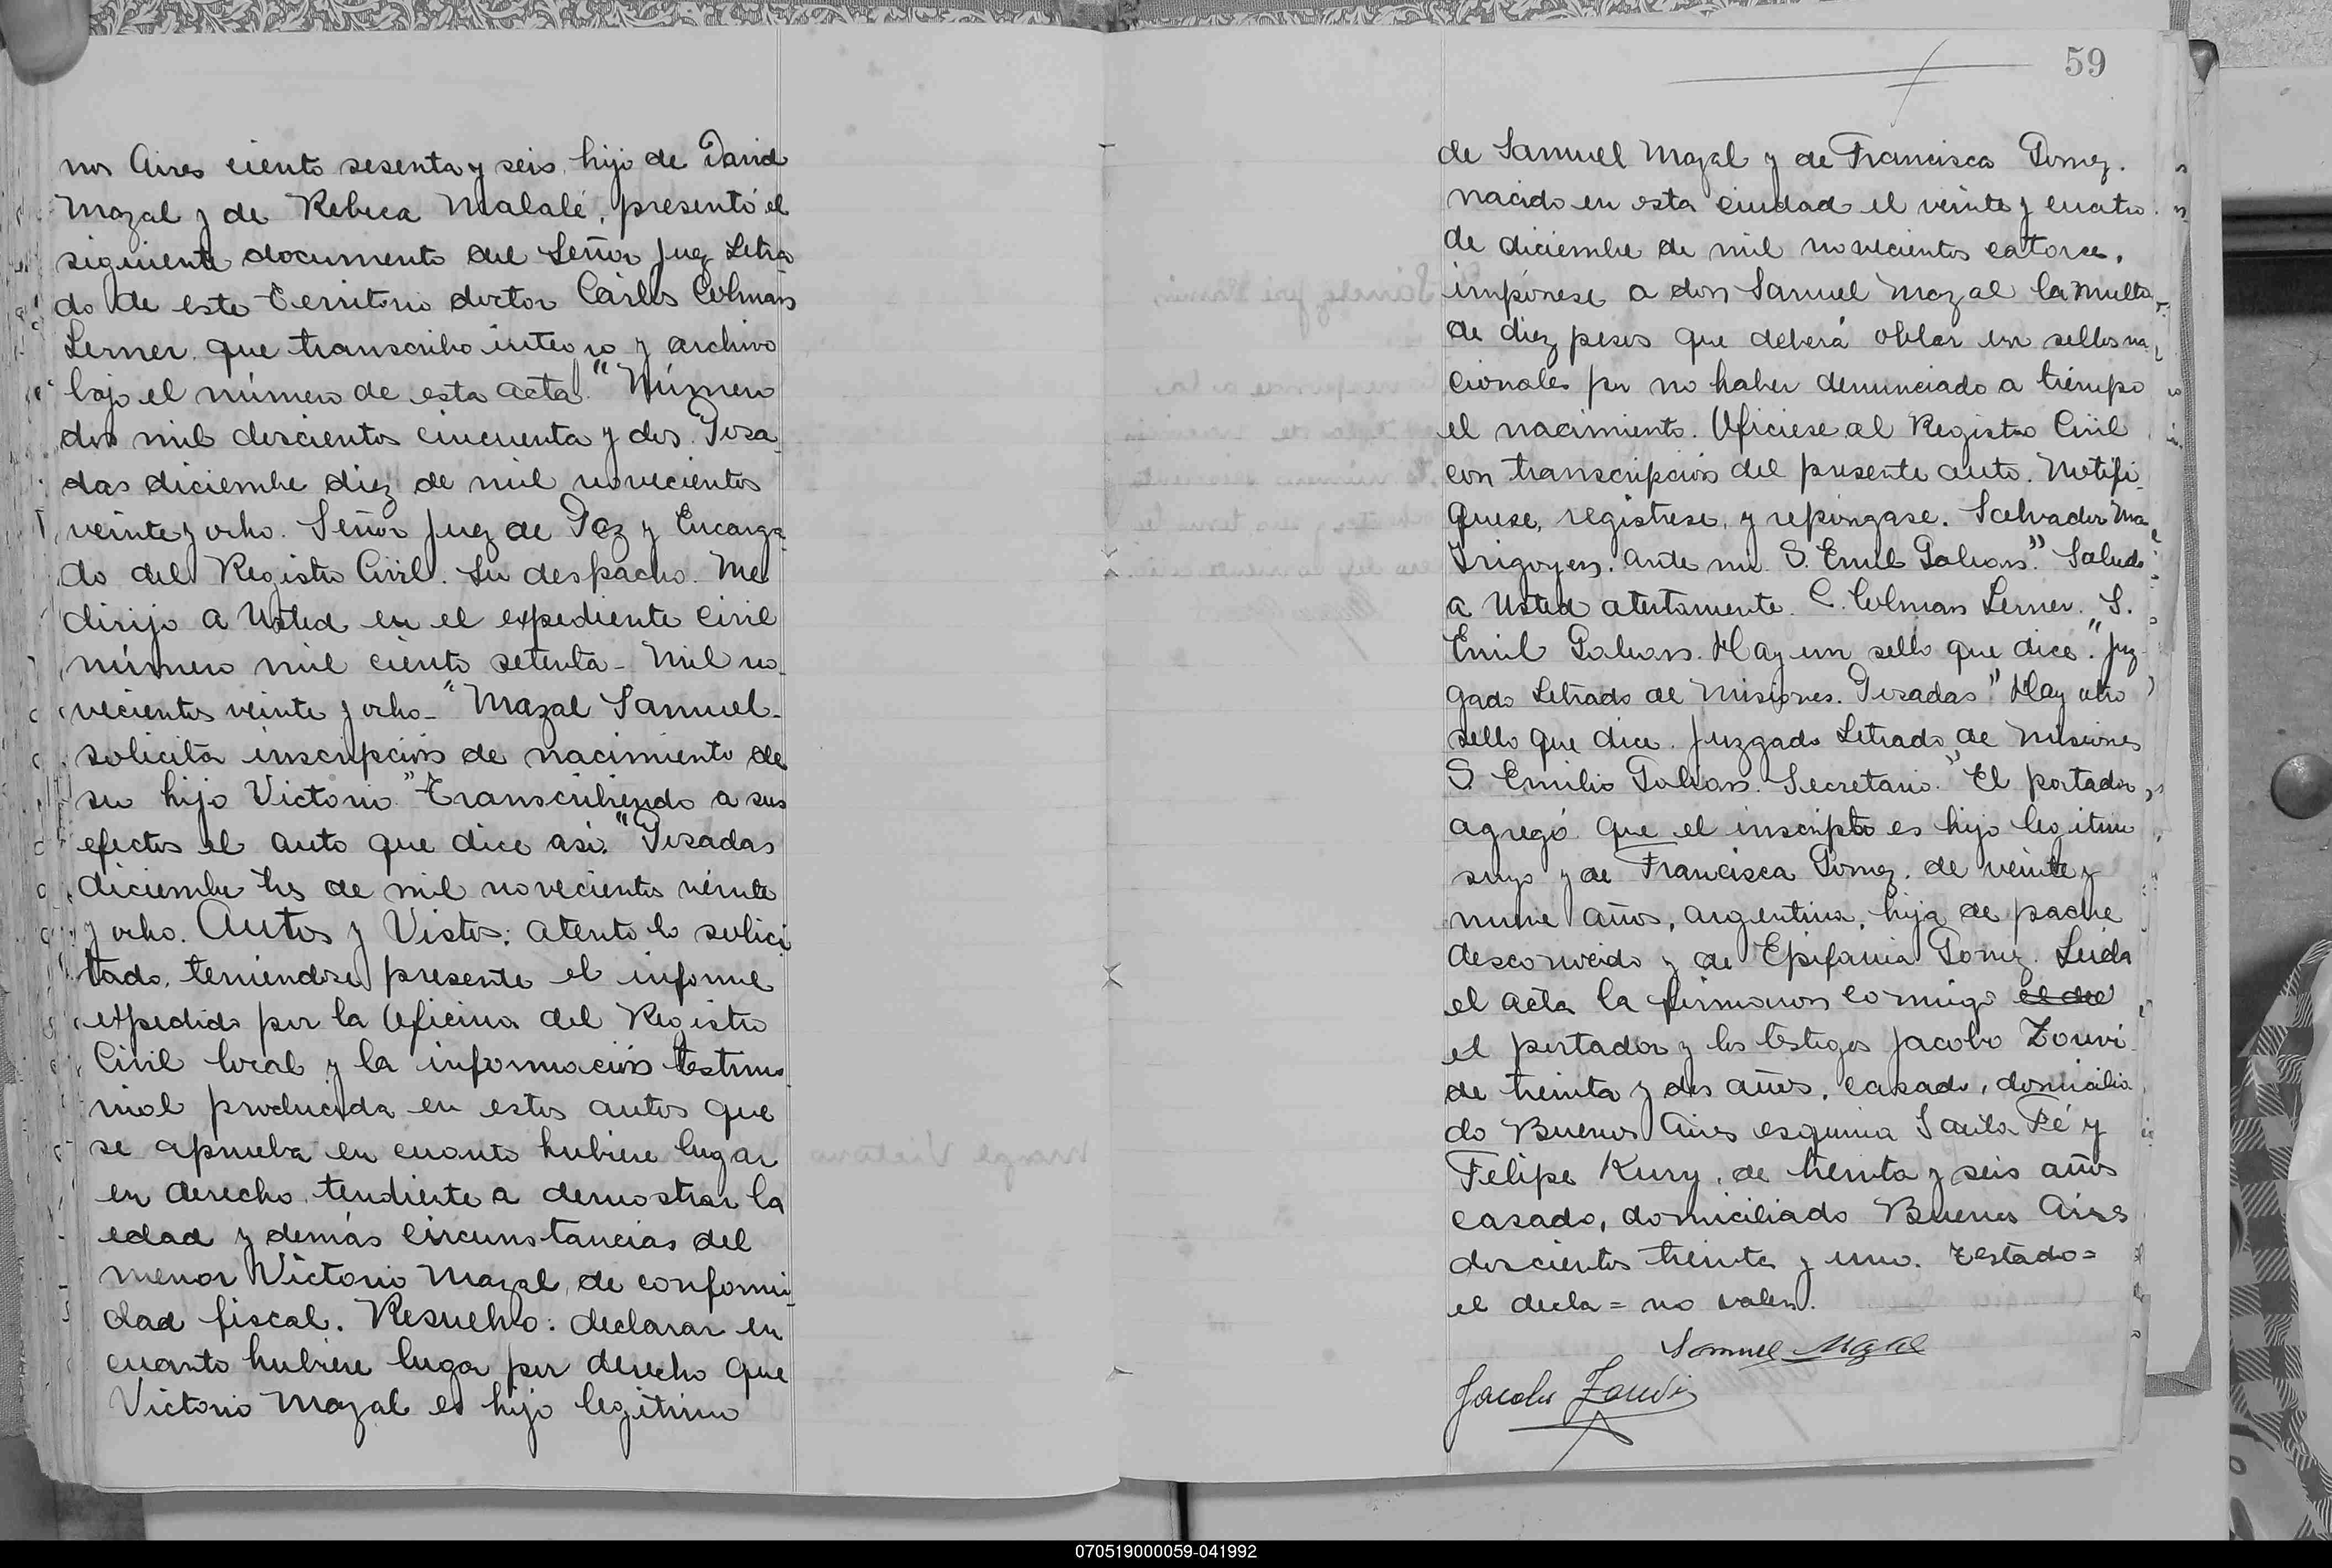 nos Aires ciento sesenta y seis, hijo de David
Mazal y de Rebeca Malalé, presentó el
siguiente documento del Señor Juez Letra
do de este territorio doctor Carlos Colman
Lerner que transcribo integro y archivo
bajo el número de esta acta. "Número
dos mil doscientos cincuenta y dos. Posa
das diciembre diez de mil novecientos
veinte y ocho. Señor Juez de Paz y Encarga
do del Registro Civil. Su despacho. Me
dirijo a Usted en el expediente civil
número mil ciento setenta - Mil no
vecientos veinte y ocho - "Mazal Samuel -
solicita inscripción de nacimiento de
su hijo Victorio" Transcribiendo a sus
efectos el auto que dice asi. "Posadas
diciembre tres de mil novecientos veinte
y ocho. Autos y Vistos: atento lo solici
tado, teniendose presente el informe
expedido por la Oficina del Registro
Civil local y la información testimo
nial producida en estos autos que
se aprueba en cuanto hubiere lugar
en derecho, tendiente a demostrar la
edad y demás circunstancias del
menor Victorio Mazal, de conformi
dad fiscal. Resuelvo: declarar en
cuanto hubiere lugar por derecho que
Victorio Mazal es hijo legitimo
59
de Samuel Mazal y de Francisca Gomez.
nacido en esta ciudad el veinte y cuatro
de diciembre de mil novecientos catorce,
impónese a don Samuel Mazal la multa
de diez pesos que deberá oblar en sellos na
cionales por no haber denunciado a tiempo
el nacimiento. Oficiese al Registro Civil
con transcripción del presente auto. Notifi
quese, registrese, y repongase. Salvador Ma
Irigoyen. ante mi. S. Emil Galvan." Saludo
a Usted atentamente. C. Colman Lerner. S.
Emil Galvan. Hay un sello que dice. "Juz
gado Letrado de Misiones. Posadas" Hay otro
sello que dice. Juzgado Letrado de Misiones
S Emilio Galvan. Secretario." El portador
agregó que el inscripto es hijo legitimo
suyo y de Francisca Gomez, de veinte y
nueve años, argentina, hija de padre
desconocido y de Epifania Gomez. Leida
el acta la firmaron conmigo el dec
el portador y los testigos Jacobo Zouvi
de treinta y dos años, casado, domicilia
do Buenos Aires esquina Santa Fé y
Felipe Kury, de treinta y seis años
casado, domiciliado Buenos Aires
doscientos treinta y uno. Testado=
el decla= no valen.
Samuel Mazal
Jacobo Zouvi
070519000059-041992